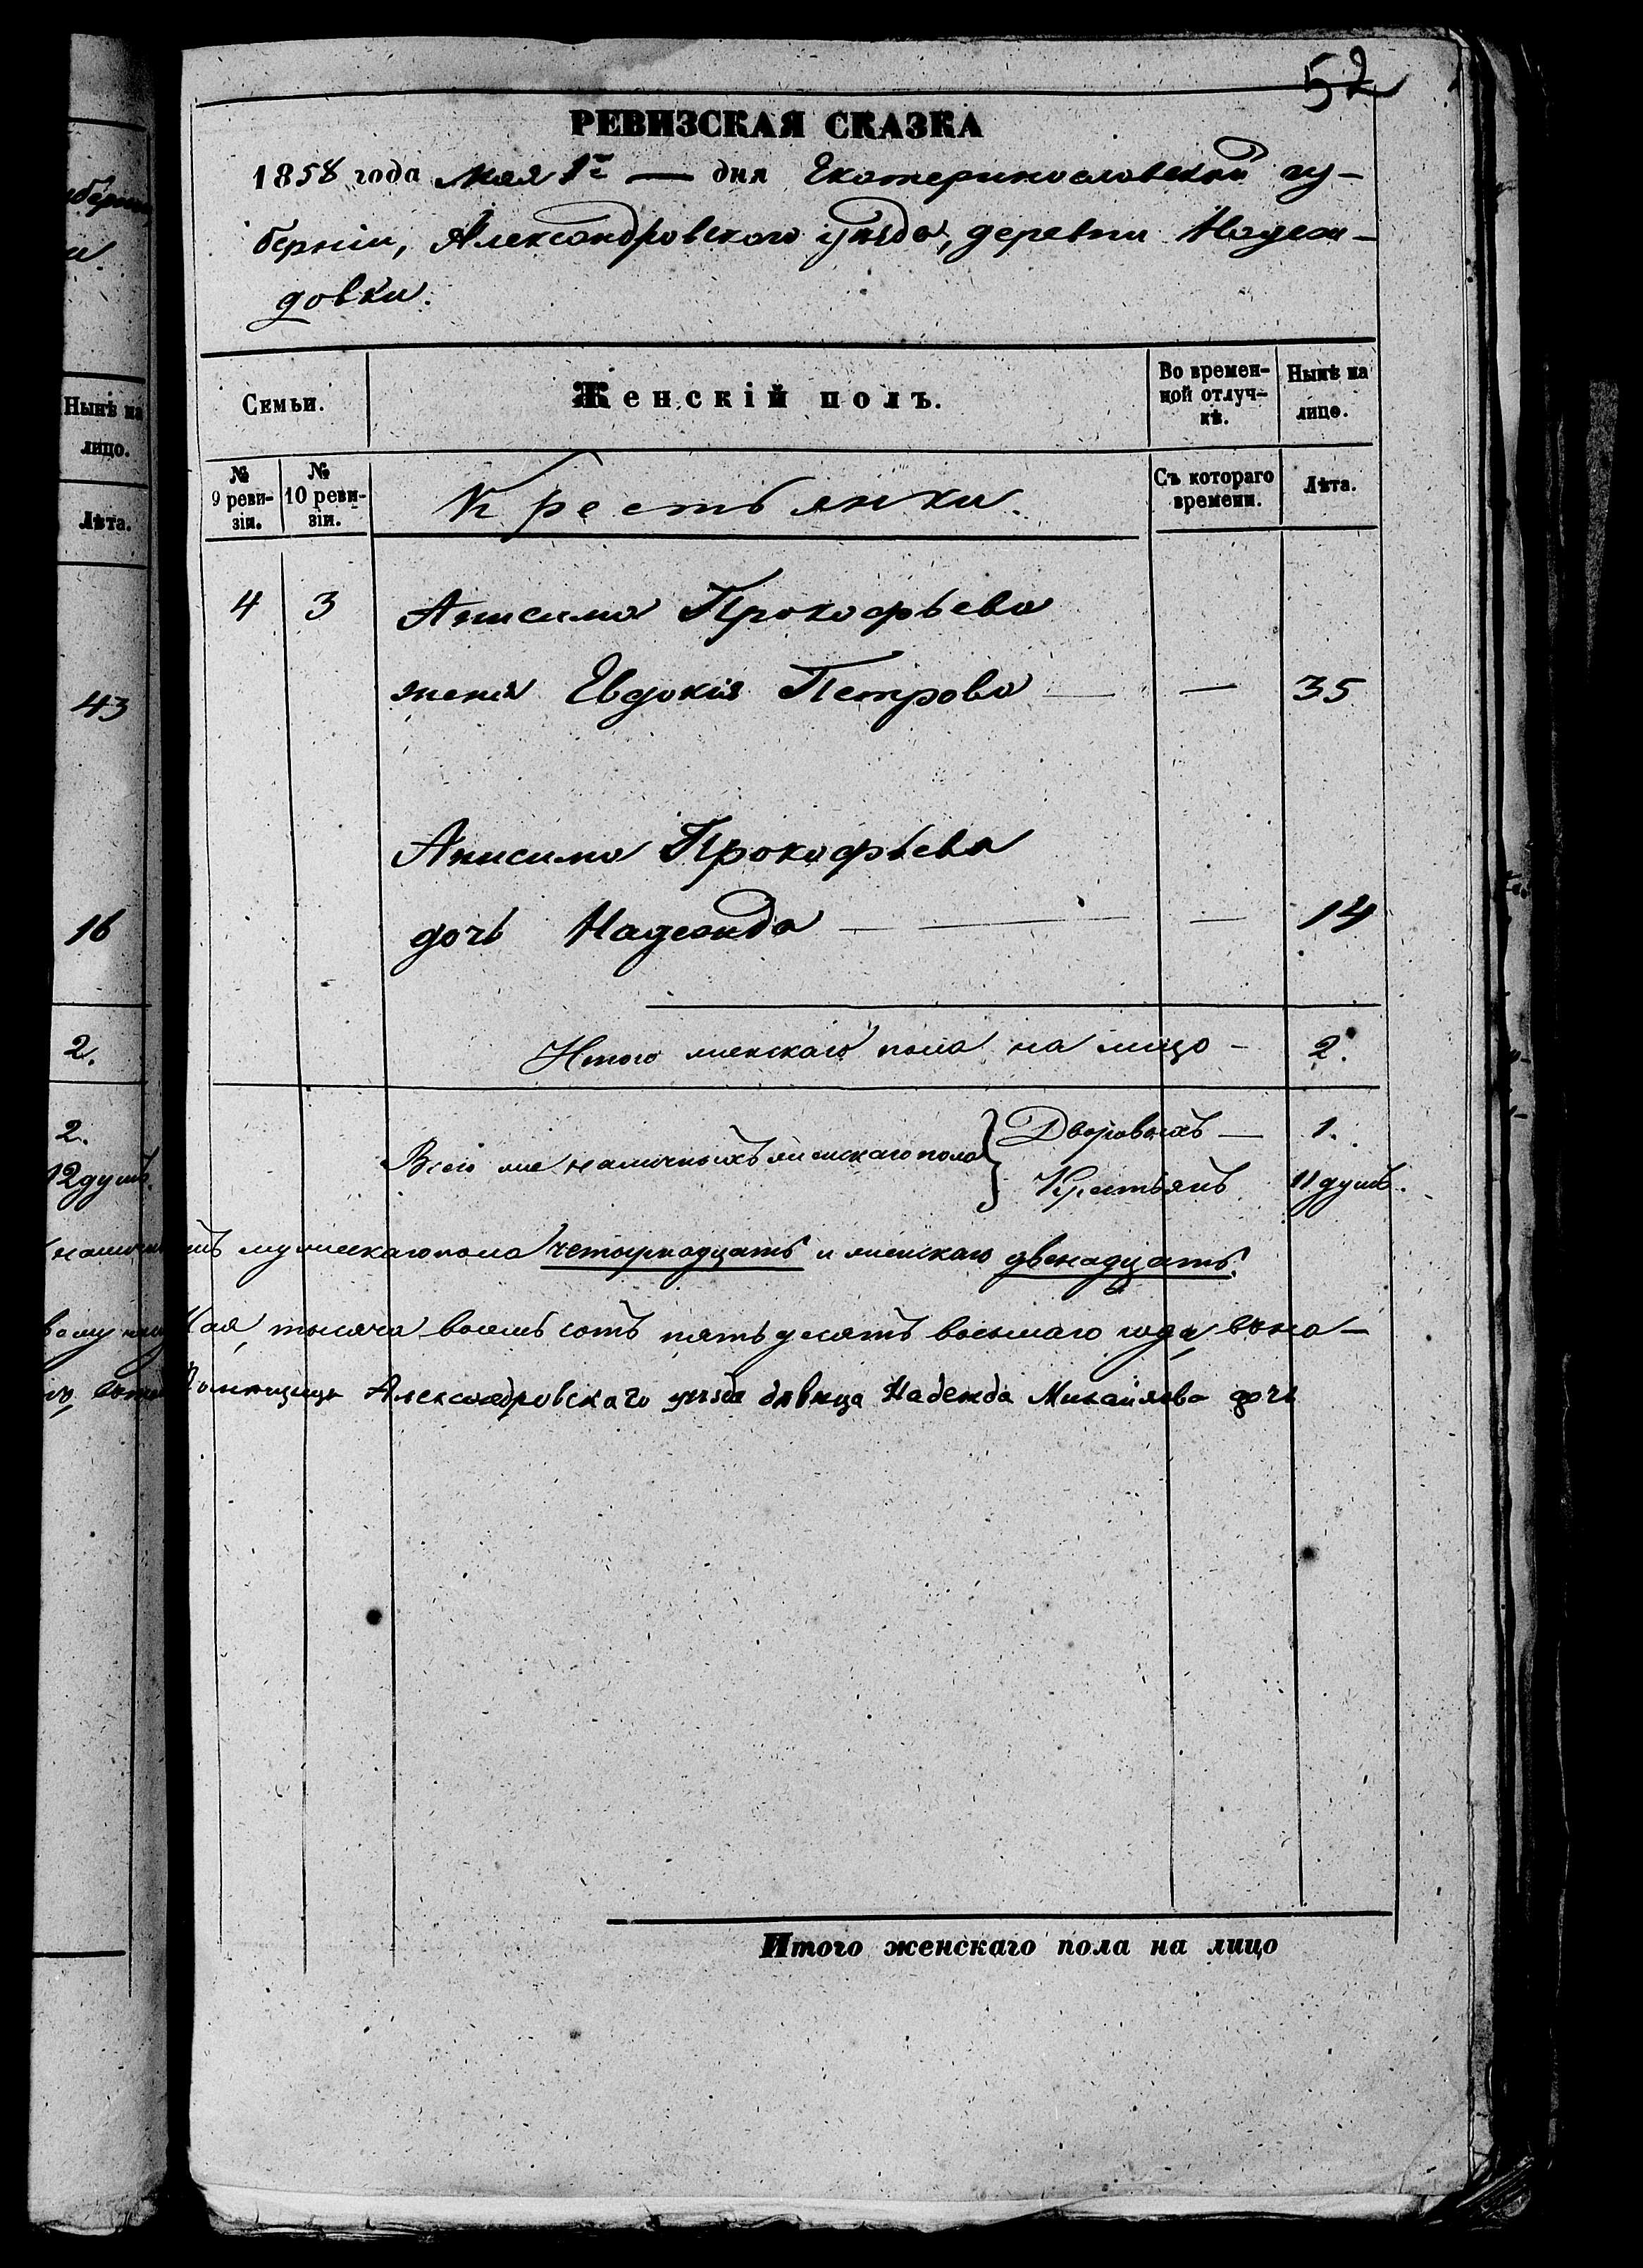 52
РЕВИЗСКАЯ СКАЗКА
1858 года Мая 1го — дня Екатеринославской гу-
берніи, Александровскаго уѣзда, деревни Надеж-
довки.
Семьи.
Женскій полъ.
Во времен-
ной отлуч-
кѣ.
Нынѣ на
лицо.
№
9 реви-
зіи.
№
10 реви-
зіи.
Крестьянки.
Съ котораго
времени.
Лѣта.
4 3 Анисима Прокофьева
жена Евдокія Петрова — — 35
Анисима Прокофьева
дочь Надежда — — 14
Итого женскаго пола на лицо - 2.
Всего же наличныхъ женскаго пола
Дворовыхъ — 1.
Крестьянъ 11 душъ.
мужескаго пола четырнадцать и женскаго двенадцать.
Мая, тысяча восемь сотъ пятьдесятъ восьмаго года,
Помѣщица Александровскаго уѣзда дѣвица Надежда Михайлова дочь
Итого женскаго пола на лицо
Нынѣ на
лицо.
Лѣта.
43
16
2.
2.
12 душъ.